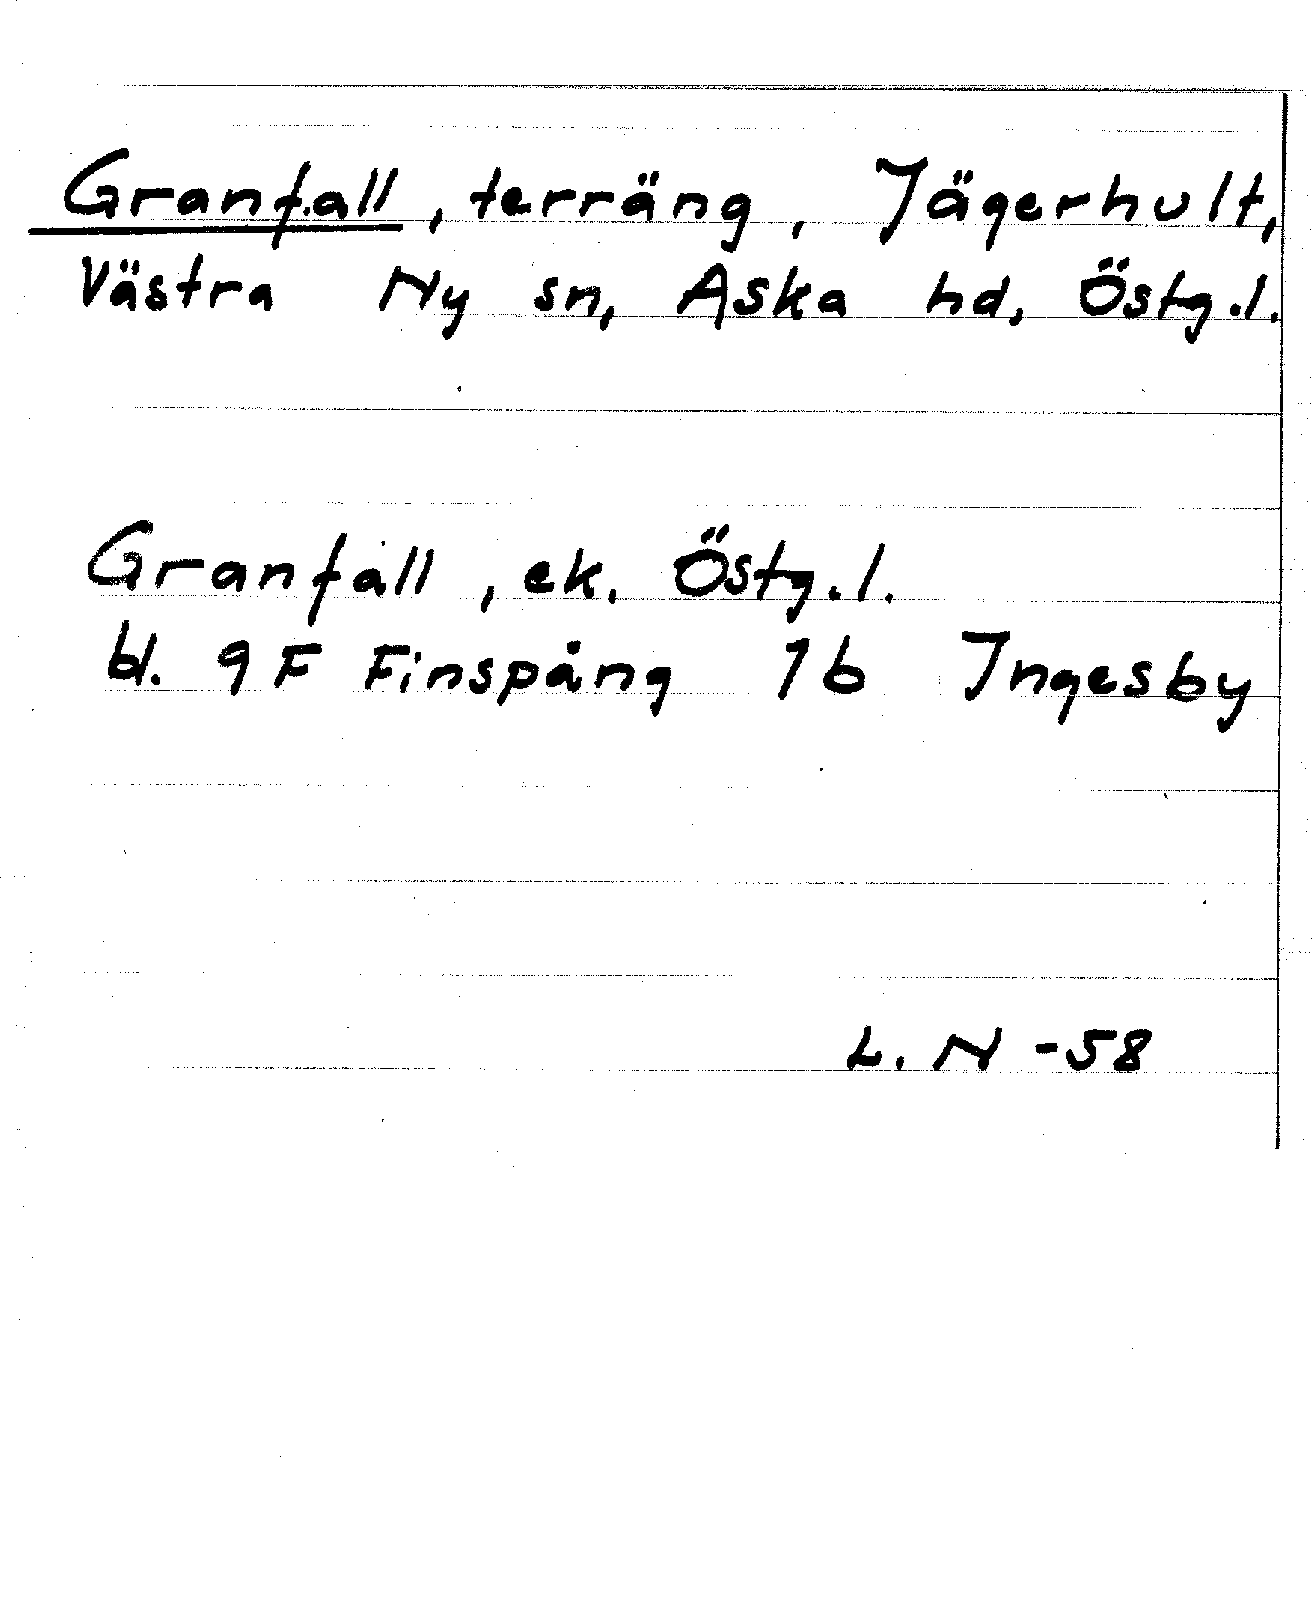 Granfall, terräng, Jägerhult,
Västra Ny sn, Aska hd, Östg.l.
Granfall, ek. Östg.l.
bl. 9F Finspång 1b Ingesby
L. N -58